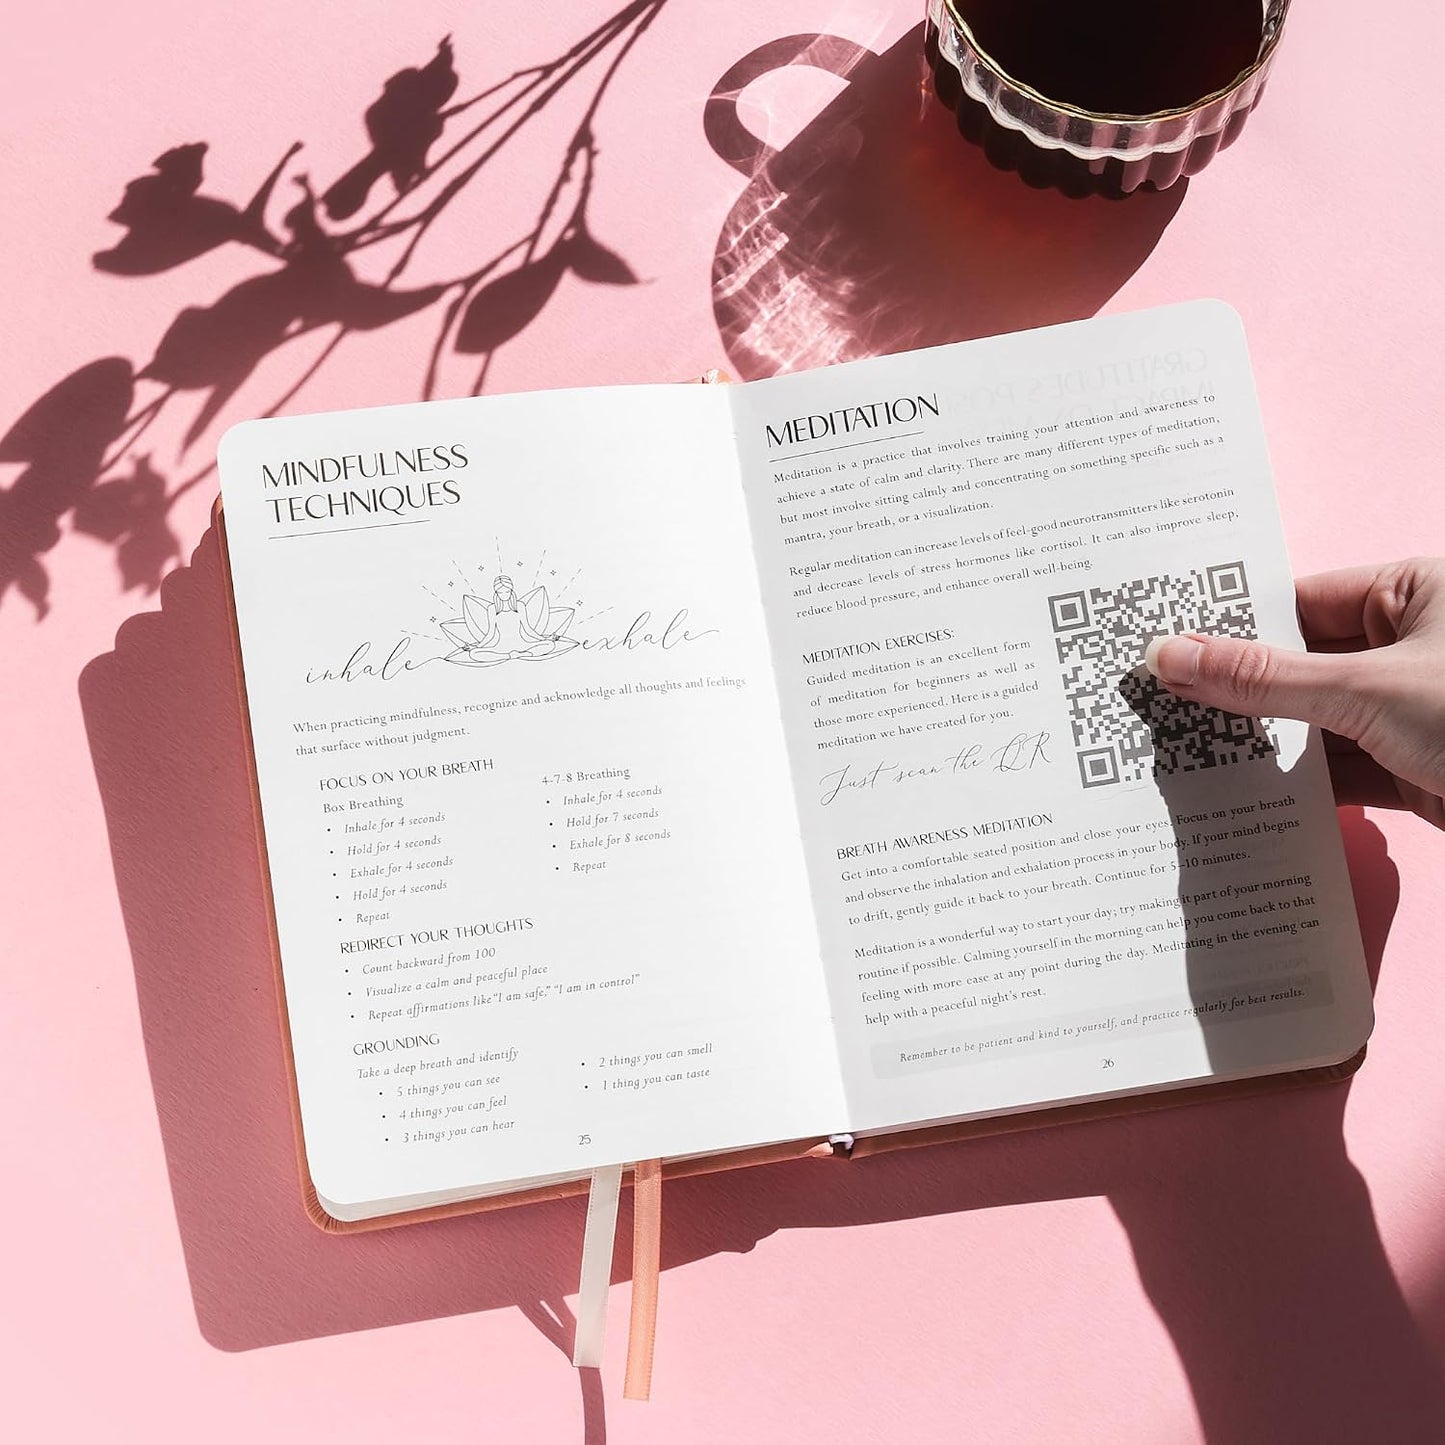 MINDFULNESS
TECHNIQUES
inhale exhale
When practicing mindfulness, recognize and acknowledge all thoughts and feelings
that surface without judgment.
FOCUS ON YOUR BREATH
Box Breathing
• Inhale for 4 seconds
• Hold for 4 seconds
• Exhale for 4 seconds
• Hold for 4 seconds
• Repeat
4-7-8 Breathing
• Inhale for 4 seconds
• Hold for 7 seconds
• Exhale for 8 seconds
• Repeat
REDIRECT YOUR THOUGHTS
• Count backward from 100
• Visualize a calm and peaceful place
• Repeat affirmations like "I am safe," "I am in control"
GROUNDING
Take a deep breath and identify
• 5 things you can see
• 4 things you can feel
• 3 things you can hear
• 2 things you can smell
• 1 thing you can taste
25
MEDITATION
Meditation is a practice that involves training your attention and awareness to
achieve a state of calm and clarity. There are many different types of meditation,
but most involve sitting calmly and concentrating on something specific such as a
mantra, your breath, or a visualization.
Regular meditation can increase levels of feel-good neurotransmitters like serotonin
and decrease levels of stress hormones like cortisol. It can also improve sleep,
reduce blood pressure, and enhance overall well-being.
MEDITATION EXERCISES:
Guided meditation is an excellent form
of meditation for beginners as well as
those more experienced. Here is a guided
meditation we have created for you.
Just scan the QR
BREATH AWARENESS MEDITATION
Get into a comfortable seated position and close your eyes. Focus on your breath
and observe the inhalation and exhalation process in your body. If your mind begins
to drift, gently guide it back to your breath. Continue for 5–10 minutes.
Meditation is a wonderful way to start your day; try making it part of your morning
routine if possible. Calming yourself in the morning can help you come back to that
feeling with more ease at any point during the day. Meditating in the evening can
help with a peaceful night's rest.
Remember to be patient and kind to yourself, and practice regularly for best results.
26